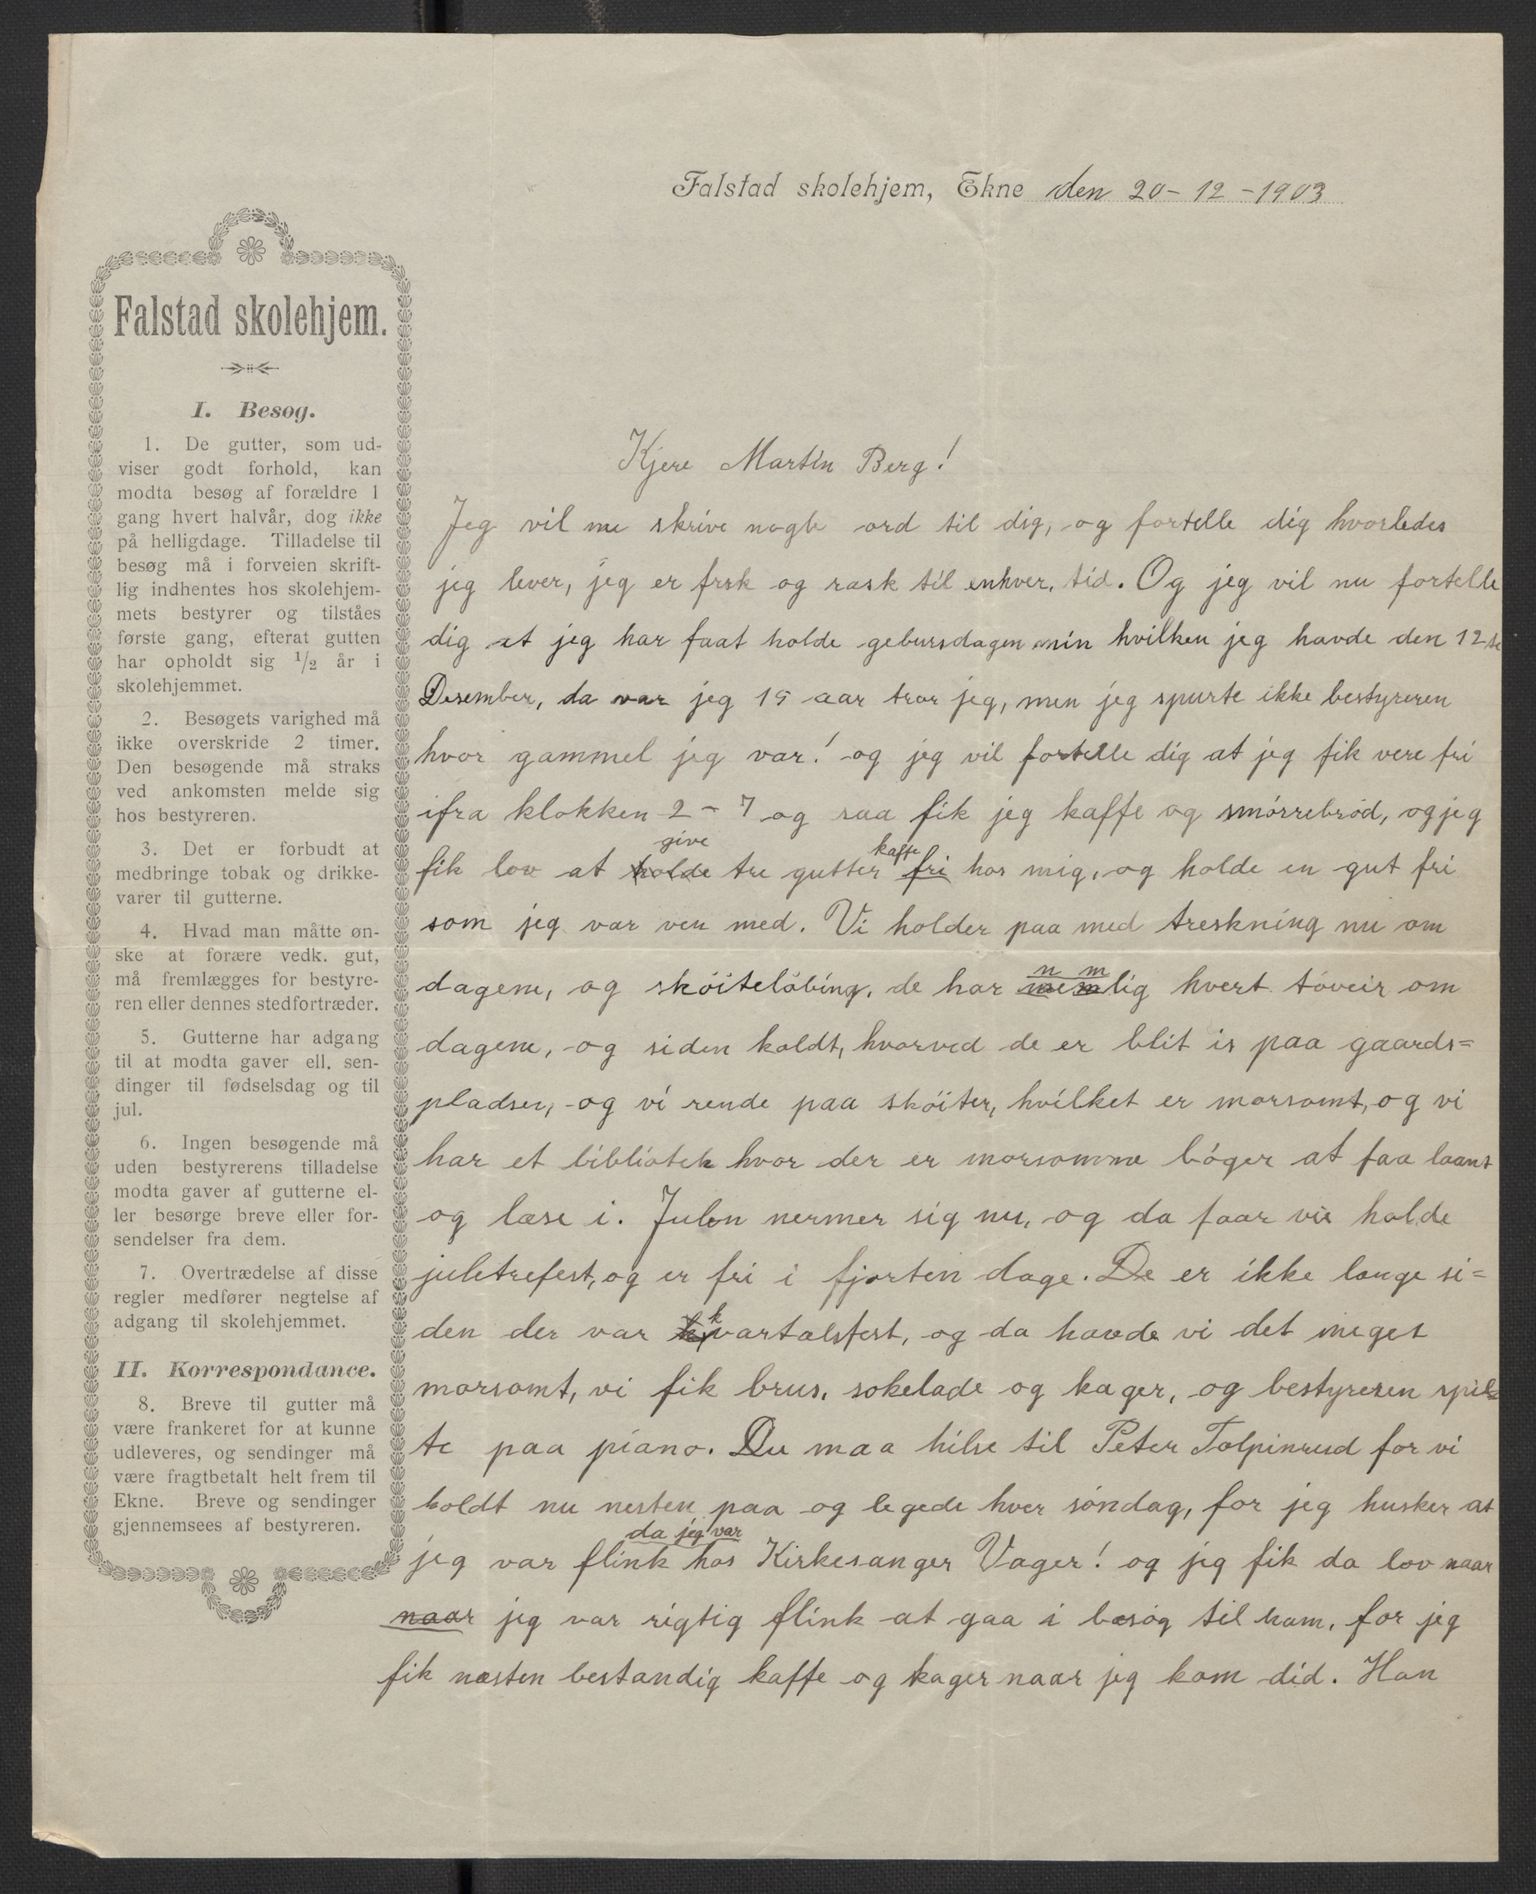 Falstad skolehjem, Ekne den 20-12-1903
Falstad skolehjem.
I. Besøg.
1. De gutter, som ud-
viser godt forhold, kan
modta besøg af forældre 1
gang hvert halvår, dog ikke
på helligdage. Tilladelse til
besøg må i forveien skrift-
lig indhentes hos skolehjem-
mets bestyrer og tilståes
første gang, efterat gutten
har opholdt sig 1/2 år i
skolehjemmet.
2. Besøgets varighed må
ikke overskride 2 timer.
Den besøgende må straks
ved ankomsten melde sig
hos bestyreren.
3. Det er forbudt at
medbringe tobak og drikke-
varer til gutterne.
4. Hvad man måtte øn-
ske at forære vedk. gut,
må fremlægges for bestyre-
ren eller dennes stedfortræder.
5. Gutterne har adgang
til at modta gaver ell. sen-
dinger til fødselsdag og til
jul.
6. Ingen besøgende må
uden bestyrerens tilladelse
modta gaver af gutterne el-
ler besørge breve eller for-
sendelser fra dem.
7. Overtrædelse af disse
regler medfører negtelse af
adgang til skolehjemmet.
II. Korrespondance.
8. Breve til gutter må
være frankeret for at kunne
udleveres, og sendinger må
være fragtbetalt helt frem til
Ekne. Breve og sendinger
gjennemsees af bestyreren.
Kjere Martin Berg!
Jeg vil nu skrive nogle ord til dig, og fortelle dig hvorledes
jeg lever, jeg er frsk og rask til enhver, tid. Og jeg vil nu fortelle
dig at jeg har faat holde gebursdagen min hvilken jeg havde den 12te
Desember, da var jeg 15 aar tror jeg, men jeg spurte ikke bestyreren
hvor gammel jeg var! og jeg vil fortelle dig at jeg fik vere fri
ifra klokken 2 - 7 og saa fik jeg kaffe og smörrebröd, og jeg
give kaffe
fik lov at holde tre gutter fri hos mig, og holde en gut fri
som jeg var ven med. Vi holder paa med treskning nu om
n m
dagene, og sköitelöbing, de har memlig hvert töveir om
dagene, og siden koldt, hvorved de er blit is paa gaards=
pladsen, og vi rende paa sköiter, hvilket er morsomt, og vi
har et bibliotek hvor der er morsomme böger at faa laant
og læse i. Julen nermer sig nu, og da faar vi holde
juletrefest, og er fri i fjorten dage. De er ikke lange si=
k
den der var kvartalsfest, og da havde vi det meget
morsomt, vi fik brus, sokelade og kager, og bestyreren spil=
te paa piano. Du maa hilse til Peter Tolpinrud for vi
holdt nu nesten paa og legede hver söndag, for jeg husker at
da jeg var
jeg var flink hos Kirkesanger Vager! og jeg fik da lov naar
naar jeg var rigtig flink at gaa i besög til ham, for jeg
fik næsten bestandig kaffe og kager naar jeg kom did. Han